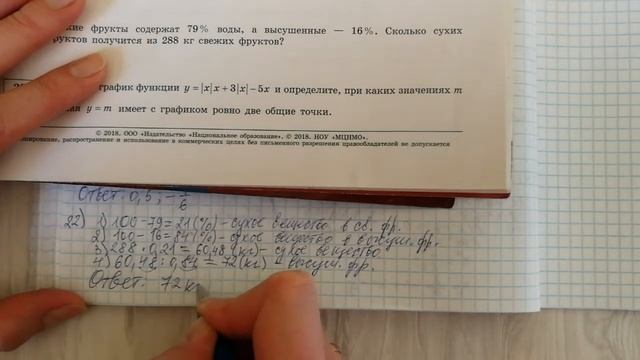 фрукты содержат 79% воды, а высушенные — 16%. Сколько сухих
фруктов получится из 288 кг свежих фруктов?
график функции y=|x|x+3|x|−5x и определите, при каких значениях m
y=m имеет с графиком ровно две общие точки.
© 2018. ООО «Издательство «Национальное образование». © 2018. НОУ «МЦНМО».
распространение и использование в коммерческих целях без письменного разрешения правообладателей не допускается
Ответ: 0,5; −7/6
22) 1) 100−79=21(%) – сухое вещество в св. фр.
2) 100−16=84(%) – сухое вещество в высуш. фр.
3) 288·0,21=60,48 (кг) – сухое вещество
4) 60,48:0,84=72(кг) – высуш. фр.
Ответ: 72 кг